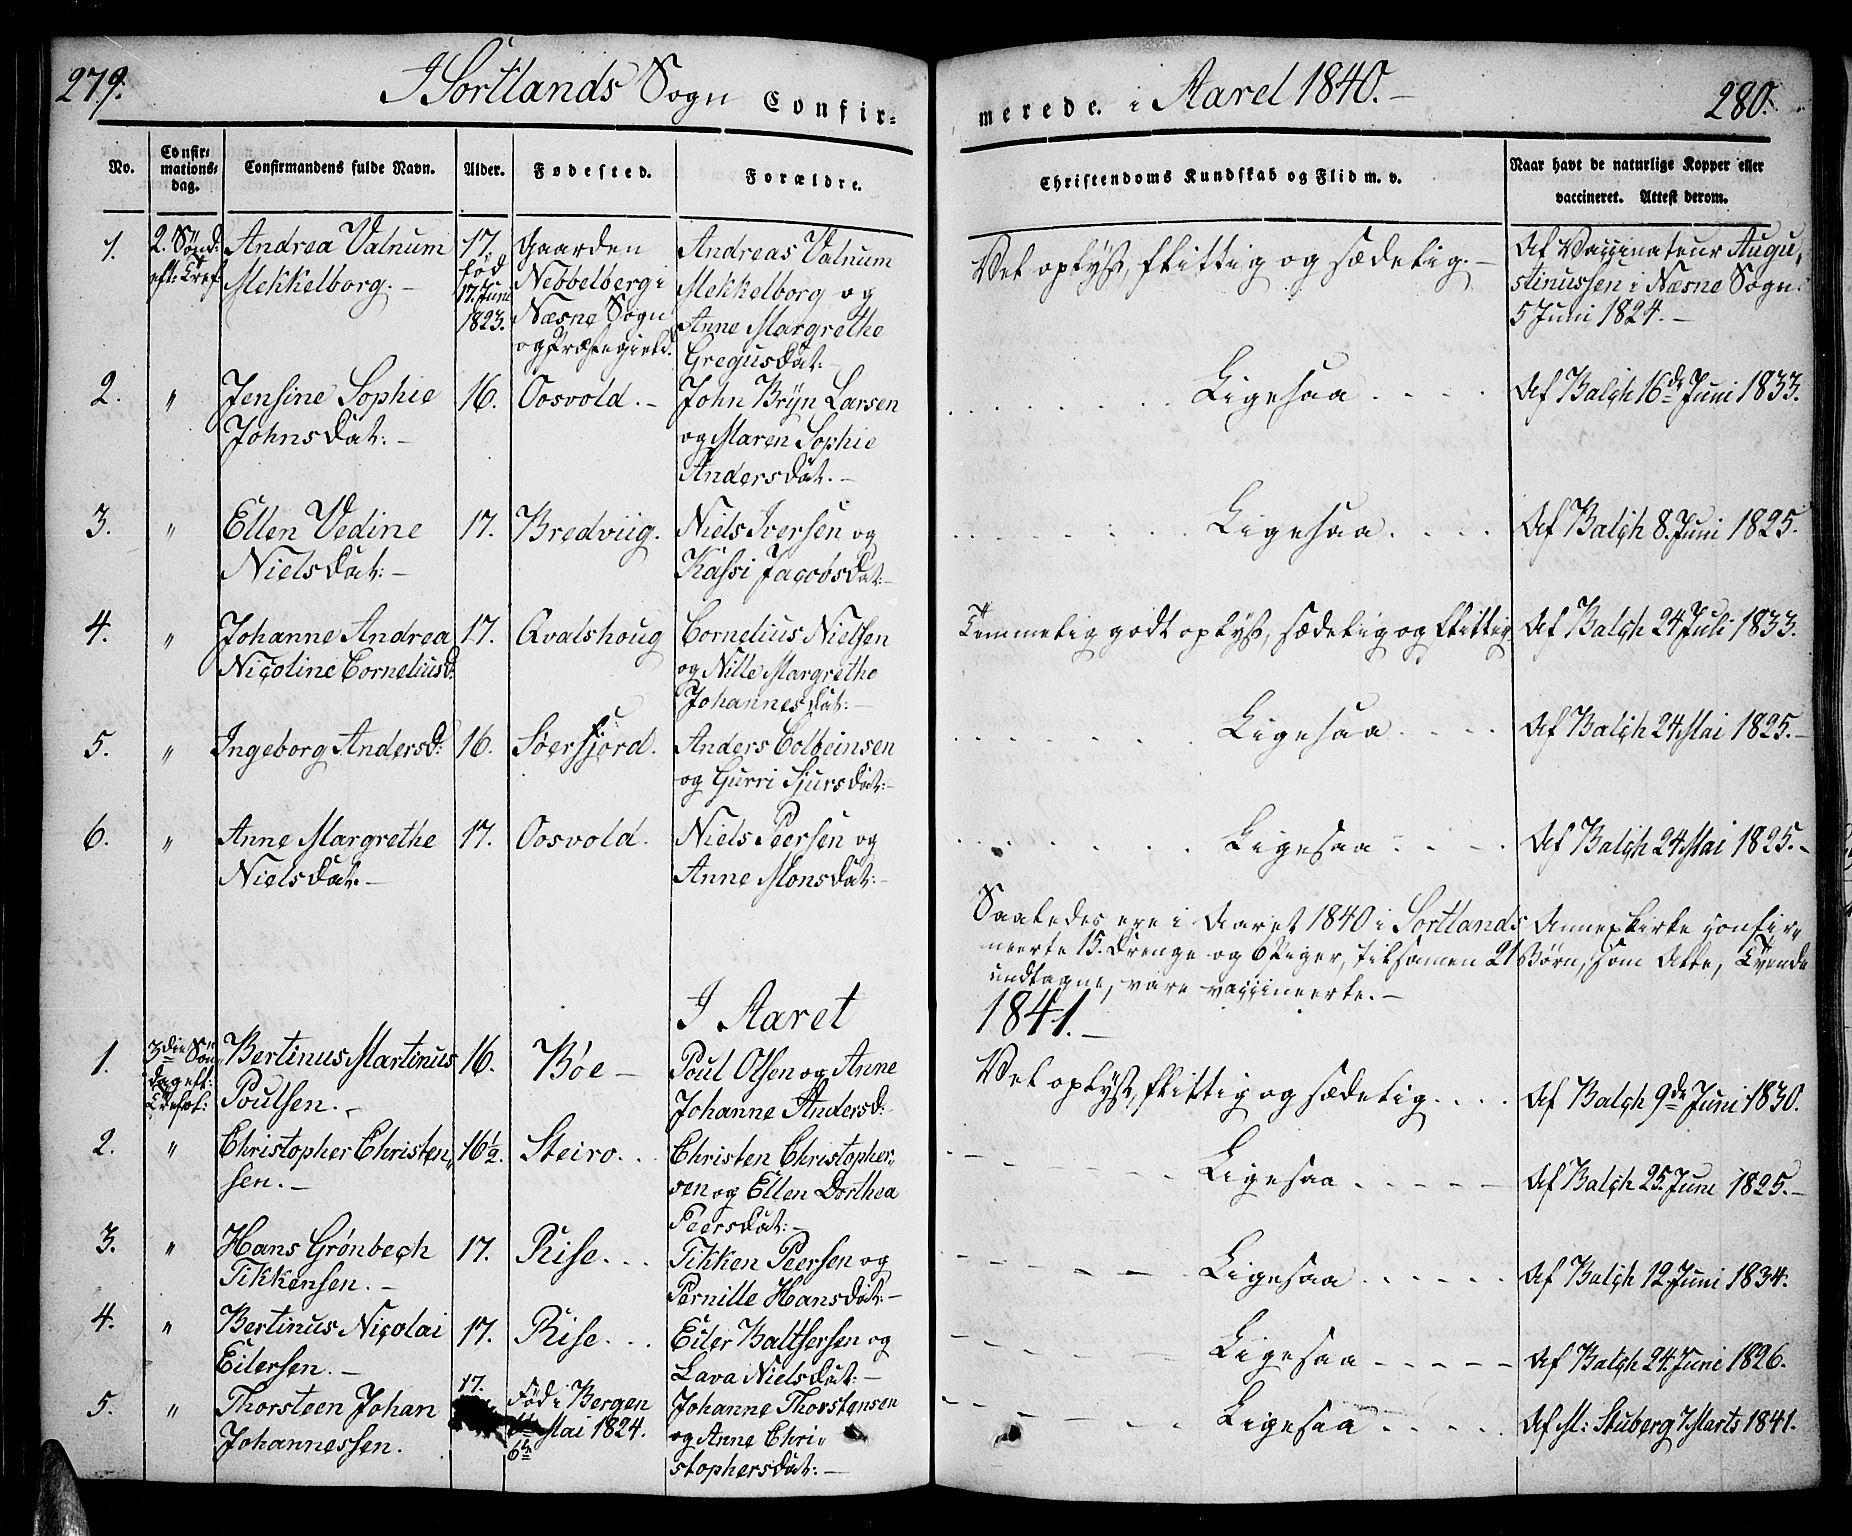 279.
I Sortlands Sogn Confir=
merede. i Aaret 1840.-
280.
No.
Confir=
mations=
dag.
Confirmandens fulde Navn.
Alder.
Fødested.
Forældre.
Christendoms Kundskab og Flid m. v.
Naar havt de naturlige Kopper eller
vaccineret. Attest derom.
1.
2. Sønd:
eft: Tref.
Andrea Valnum
Mekkelborg.-
17.
født
17. Juni
1823.
Gaarden
Nebbelberg i
Næsne Sogn
og Præstegield.
Andreas Valnum
Mekkelborg og
Anne Margrethe
Gregusdat:-
Vel oplyst, flittig og sædelig.-
Af Vaccinateur Augu„
stinussen i Næsne Sogn
5 Juni 1824.-
2.
"
Jensine Sophie
Johnsdat:-
16.
Oosvold.-
John Bryn Larsen
og Maren Sophie
Andersdat.-
Ligesaa
Af Balch 16de Juni 1833.
3.
"
Ellen Vedine
Nielsdat:-
17.
Bredviig.
Niels Iversen og
Kassi Jacobsdat:-
Ligesaa
Af Balch 8. Juni 1825.
4.
"
Johanne Andrea
Nicoline Corneliusd:
17.
Qvalshoug
Cornelius Nielsen
og Nille Margrethe
Johannesdat:-
Temmelig godt oplyst, sædelig og flittig
Af Balch 24 Juli 1833.
5.
"
Ingeborg Andersd:
16.
Søerfjord.
Anders Colbeinsen
og Gurri Sjursdat:-
Ligesaa
Af Balch 24 Mai 1825.-
6.
"
Anne Margrethe
Nielsdat.-
17.
Oosvold.
Niels Peersen og
Anne Monsdat:-
Ligesaa
Af Balch 24 Mai 1825.-
Saaledes ere i Aaret 1840 i Sortlands Annexkirke confir„
meerte 15. Drenge og 6 Piger, tilsamen 21 Børn, som Alle, Tvende
undtagne, vare vaccineerte.-
I Aaret
1841.-
1.
3die Søn„
dag eft:
Trefol:
Bertinus Martinus
Poulsen.-
16.
Bøe-
Poul Olsen og Anne
Johanne Andersd:
Vel oplyst, flittig og sædelig....
Af Balch 9de Juni 1830.
2.
"
Christopher Christen„
sen.-
16½.
Steiro...
Christen Christopher„
sen og Ellen Dorthea
Peersdat:-
Ligesaa
Af Balch 25. Juni 1825.-
3.
"
Hans Grønbech
Tikkensen.-
17.
Rise...
Tikken Peersen og
Pernille Hansdat:-
Ligesaa
Af Balch 12 Juni 1834.
4.
"
Bertinus Nicolai
Eilersen.-
17.
Rise...
Eiler Baltsersen og
Lava Nielsdat:-
Ligesaa
Af Balch 24. Juni 1826.
5.
"
Thorsteen Johan
Johannessen.
17.
Fød i Bergen
Mai 1824.
6te
Johanne Thorstensen
og Anne Chri„
stophersdat:-
Ligesaa
Af M: Stuberg 7 Marts 1841.